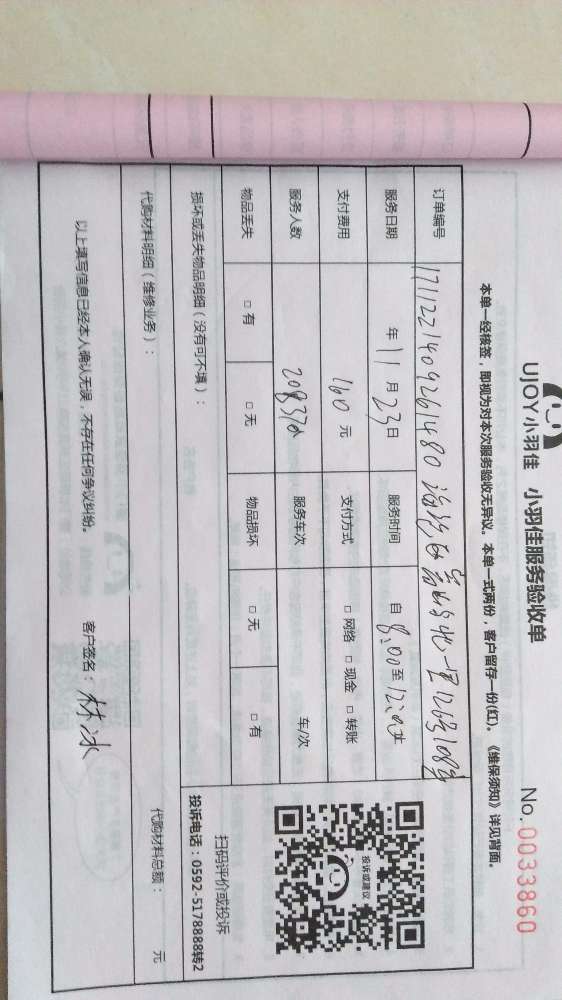 UJOY小羽佳 小羽佳服务验收单
No.0033860
本单一经核签，即视为对本次服务验收无异议。本单一式两份，客户留存一份(红)。《维保须知》详见背面。
订单编号 1711221409261480
服务日期 年 11 月 23 日 服务时间 自 8:00 至 12:00止
支付费用 160 元 支付方式 □ 网络 □ 现金 □ 转账
服务人数 服务车次 车/次
物品丢失 □ 有 □ 无 物品损坏 □ 无 □ 有
投诉或建议
扫码评价或投诉
投诉电话：0592-5178888转2
损坏或丢失物品明细（没有可不填）：
代购材料明细（维修业务）：
代购材料总额： 元
以上填写信息已经本人确认无误，不存在任何争议纠纷。 客户签名：林冰